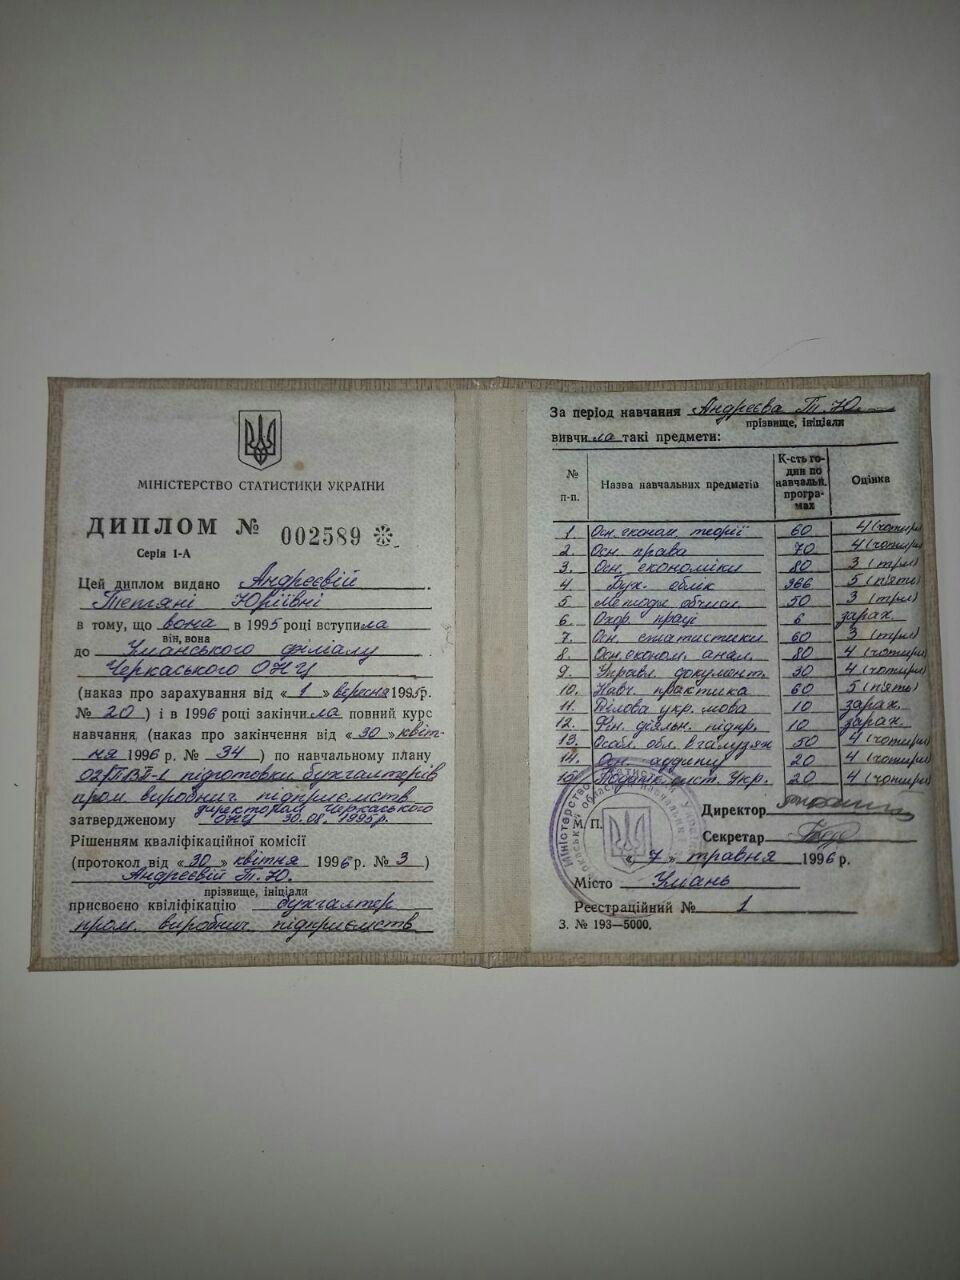 МІНІСТЕРСТВО СТАТИСТИКИ УКРАЇНИ
ДИПЛОМ № 002589 ✻
Серія І-А
Цей диплом видано Андреєвій
Тетяні Юріївні
в тому, що вона в 1995 році вступила
він, вона
до Уманського філіалу
Черкаського ОНЦ
(наказ про зарахування від «1» вересня 1995р.
№ 20) і в 1996 році закінчила повний курс
навчання, (наказ про закінчення від «30» квіт-
ня 1996 р. № 34) по навчальному плану
підготовки бухгалтерів
пром. виробнич. підприємств
директором Черкаського
затвердженому ОНЦ 30.08.1995р.
Рішенням кваліфікаційної комісії
(протокол від «30» квітня 1996 р. № 3)
Андреєвій Т.Ю.
прізвище, ініціали
присвоєно квіліфікацію бухгалтер
пром. виробнич. підприємств
За період навчання Андреєва Т.Ю.
прізвище, ініціали
вивчила такі предмети:
№ п-п. Назва навчальних предметів К-сть годин по навчальн. програмах Оцінка
1. Осн. економ. теорії 60 4 (чотири)
2. Осн. права 70 4 (чотири)
3. Осн. економіки 80 3 (три)
4 Бух. облік 366 5 (п'ять)
5 Методи обчисл. 50 3 (три)
6. Охор. праці 6 зарах.
7. Осн. статистики 60 3 (три)
8. Осн. економ. анал. 80 4 (чотири)
9. Управл. документ. 30 4 (чотири)
10. Навч. практика 60 5 (п'ять)
11. Ділова укр. мова 10 зарах.
12. Фін. діяльн. підпр. 10 зарах.
13. Особл. обл. в галузях 50 4 (чотири)
14. Осн. аудиту 20 4 (чотири)
15. Укр. 20 4 (чотири)
Директор
М. П.
Секретар
«7» травня 1996 р.
Місто Умань
Реєстраційний № 1
З. № 193—5000.